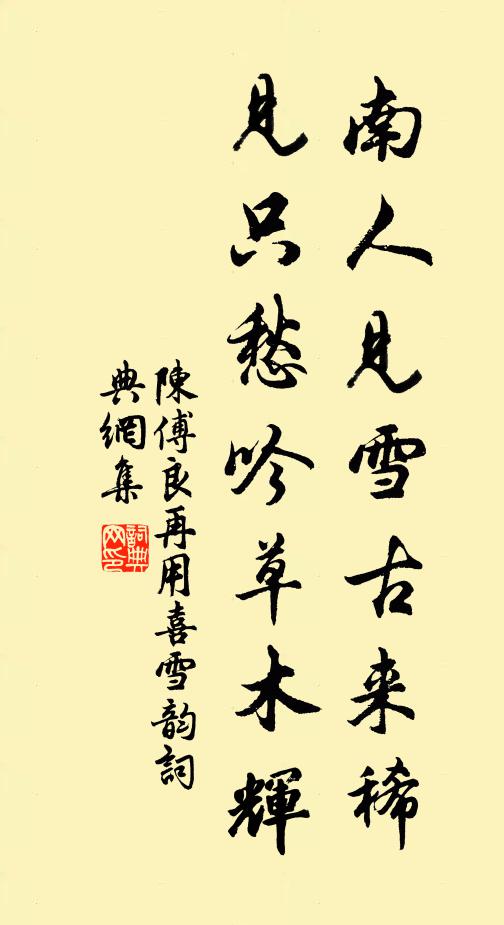 南人見雪古来稀
見只愁吟草木輝
陳傅良再用喜雪韵詞
典網集
詞典
网印